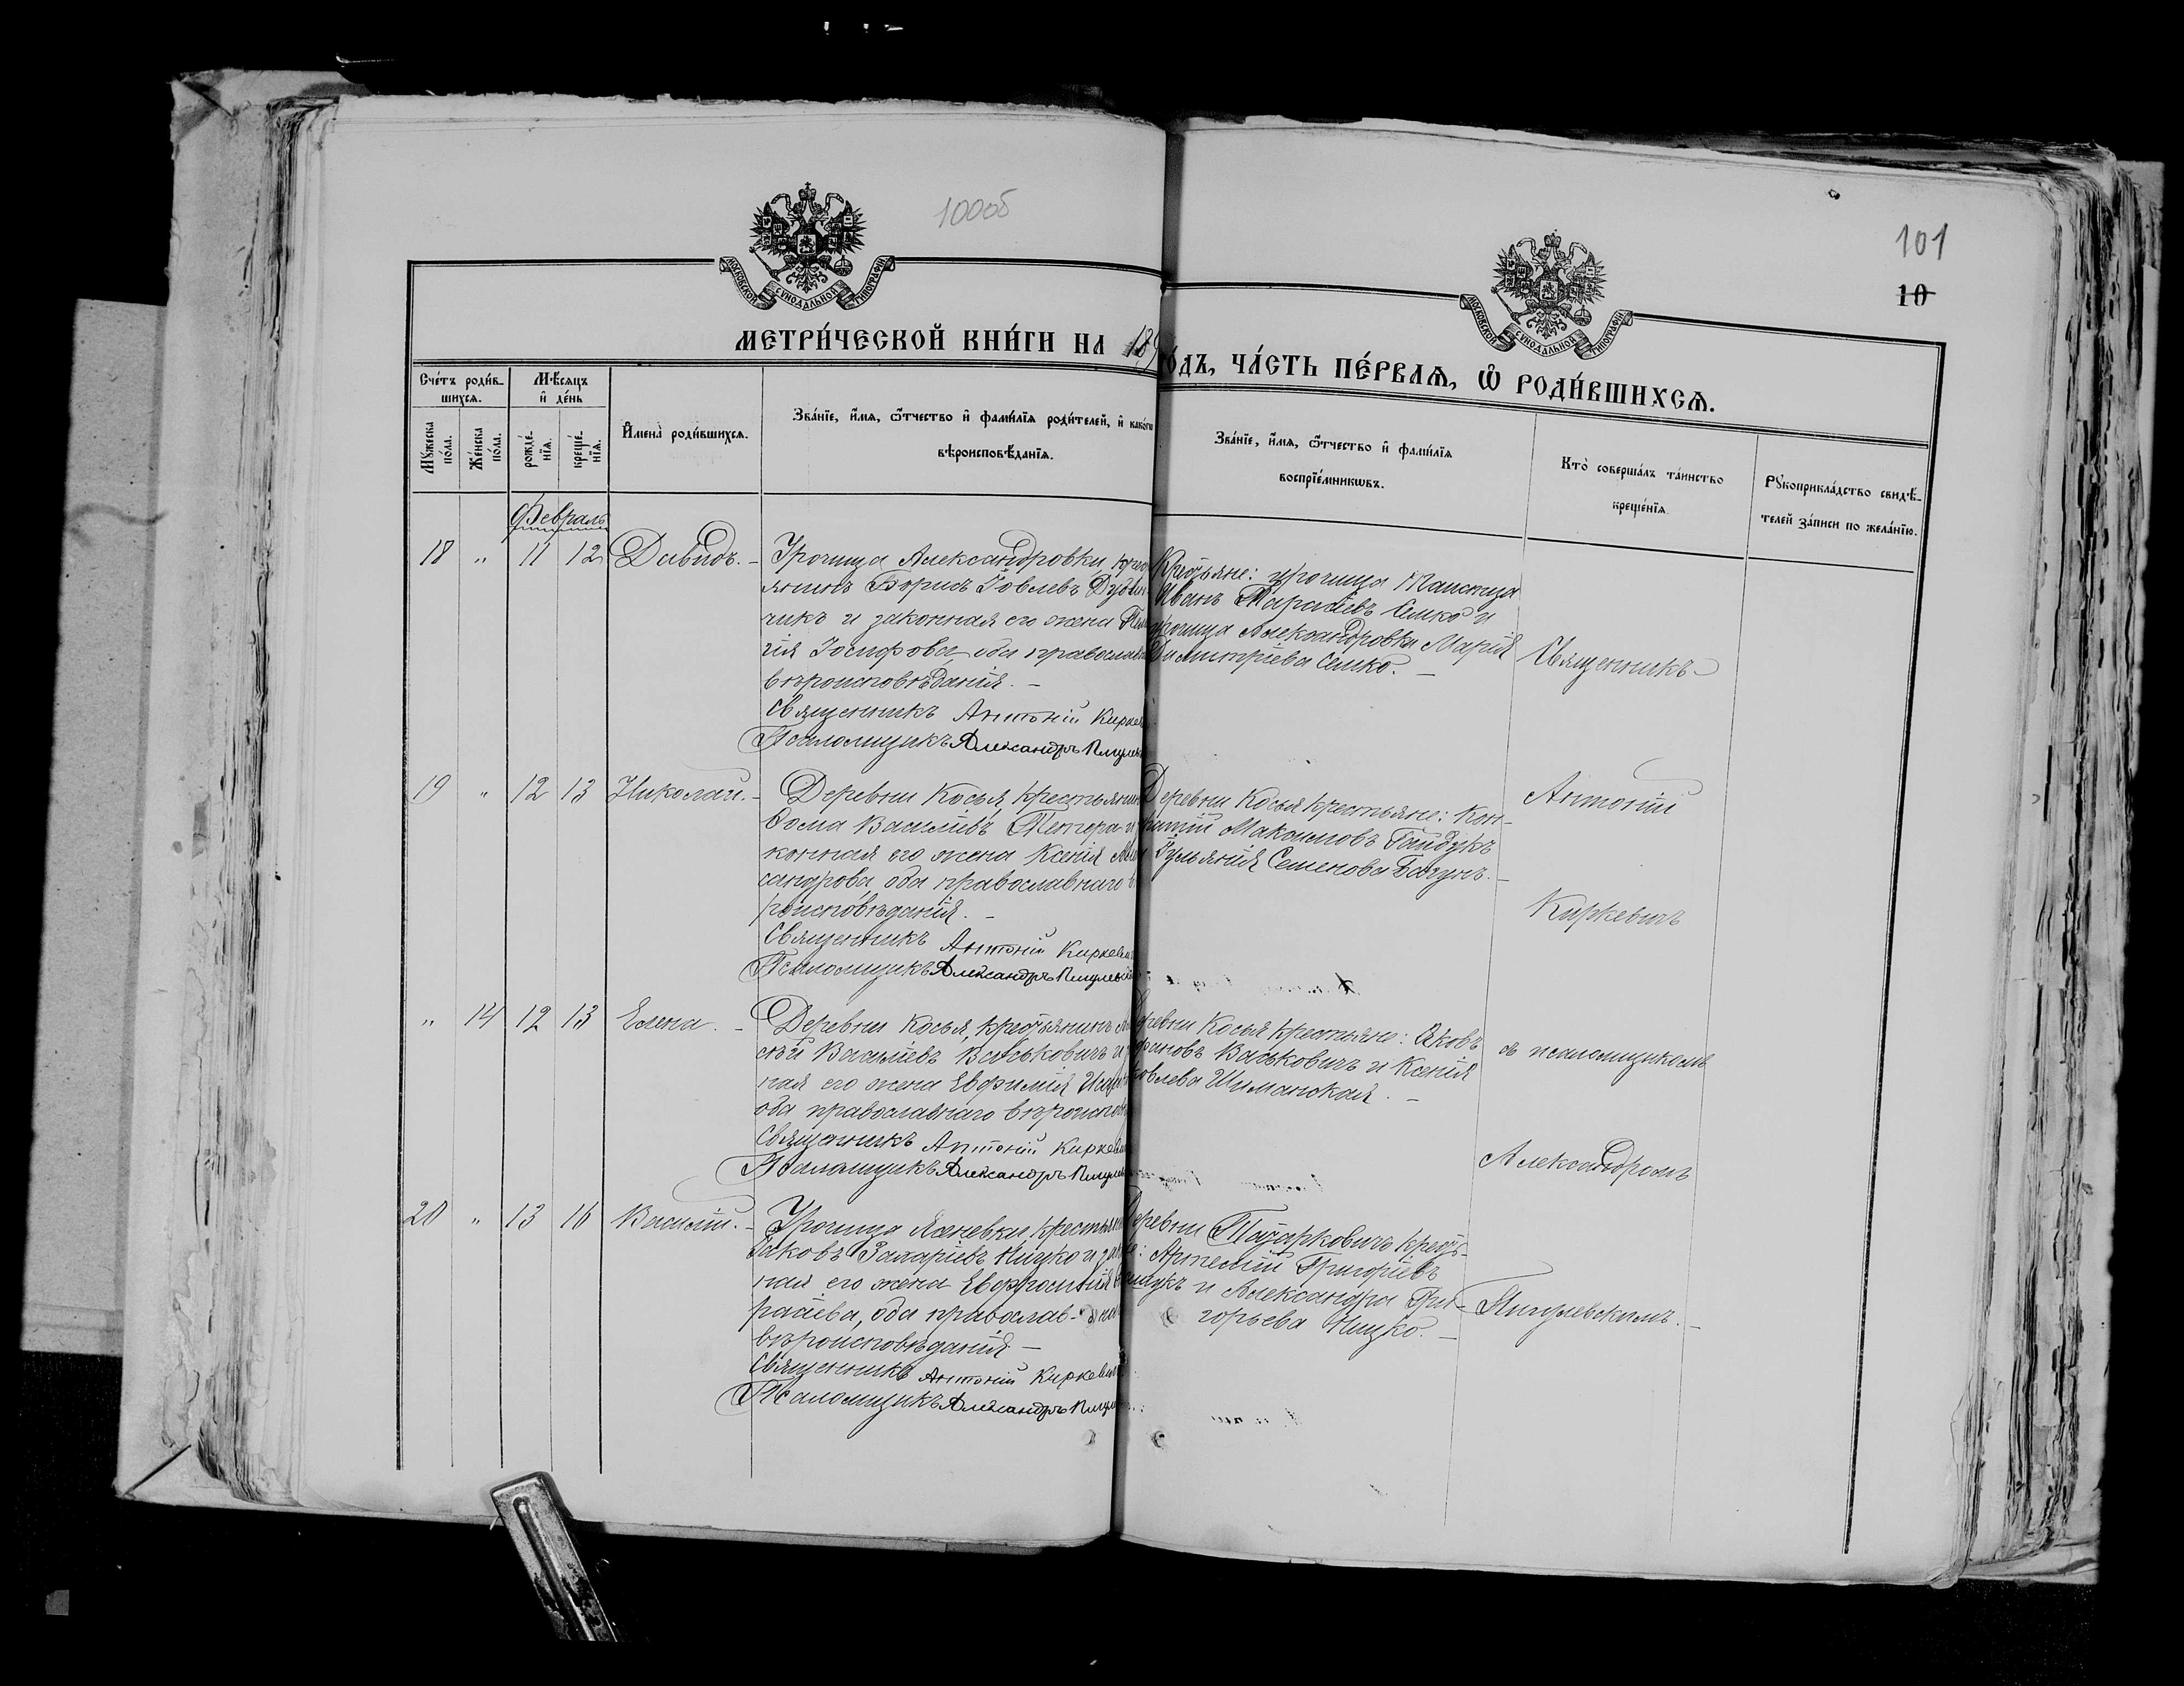 100об
101
10
МОСКОВСКОЙ СѴНОДАЛЬНОЙ ТИПОГРАФІИ
МОСКОВСКОЙ СѴНОДАЛЬНОЙ ТИПОГРАФІИ
МЕТРИ́ЧЕСКОЙ КНИ́ГИ НА 189
ГО́ДЪ, ЧА́СТЬ ПЕ́РВАѦ, Ѡ҆ РОДИ́ВШИХСѦ.
Сче́тъ роди́в-
шихсѧ.
Мꙋ́жеска по́ла.
Же́нска по́ла.
Мѣ́сѧцъ
и҆ де́нь
рожде́-
нїѧ.
креще́-
нїѧ.
И҆мена̀ роди́вшихсѧ.
Зва́нїе, и҆́мѧ, ѻ҆́тчество и҆ фами́лїѧ роди́телей, и҆ како́гѡ
вѣроисповѣ́данїѧ.
Зва́нїе, и҆́мѧ, ѻ҆́тчество и҆ фами́лїѧ
воспрїе́мникѡвъ.
Кто̀ соверша́лъ та́инство
креще́нїѧ.
Рꙋкоприкла́дство свидѣ́-
телей за́писи по жела́нїю.
Февраль
18 " 11 12 Давидъ. –
Урочища Александровки крес
янинъ Борисъ Іовлевъ Дубин
чикъ и законная его жена Пела
гія Іосифова оба православн
вѣроисповѣданія. –
Священникъ Антоній Киркев
Псаломщикъ Александръ Пигулев
Крестьяне: урочища
Иванъ Тарасіевъ Семко и
урочища Александровки Марія
Димитріева Семко. –
Священникъ
19 " 12 13 Николай. –
Деревни Косья, крестьянинъ
Ѳома Василіевъ Тетера и
конная его жена Ксенія
сандрова, оба православнаго в
роисповѣданія. –
Священникъ Антоній Киркевичъ
Псаломщикъ Александръ Пигулевскій
Деревни Косья крестьяне: Кон-
ратій Максимовъ Гайдукъ
Іульянія Семенова Багунъ. –
Антоній
Киркевичъ
" 14 12 13 Елена. –
Деревни Косья, крестьянинъ
сѣй Василіевъ Васьковичъ и
ная его жена Евфимія
оба православнаго вѣроиспов
Священникъ Антоній Киркев
Псаломщикъ Александръ Пигулев
Деревни Косья крестьяне: Яковъ
фановъ Васьковичъ и Ксенія
ковлева Шиманская. –
съ псаломщикомъ
Александромъ
20 " 13 16 Василій. –
Урочища Ясневки, крестьянинъ
Іаковъ Захаріевъ Ницко и зак
ная его жена Евфросинія
расіева, оба православ-на
вѣроисповѣданія –
Священникъ Антоній Киркевичъ
Псаломщикъ Александръ Пигул
Деревни крестья-
не: Артемій Григоріевъ
и Александра Гри-
горьева Ницко. –
Пигулевскимъ. –